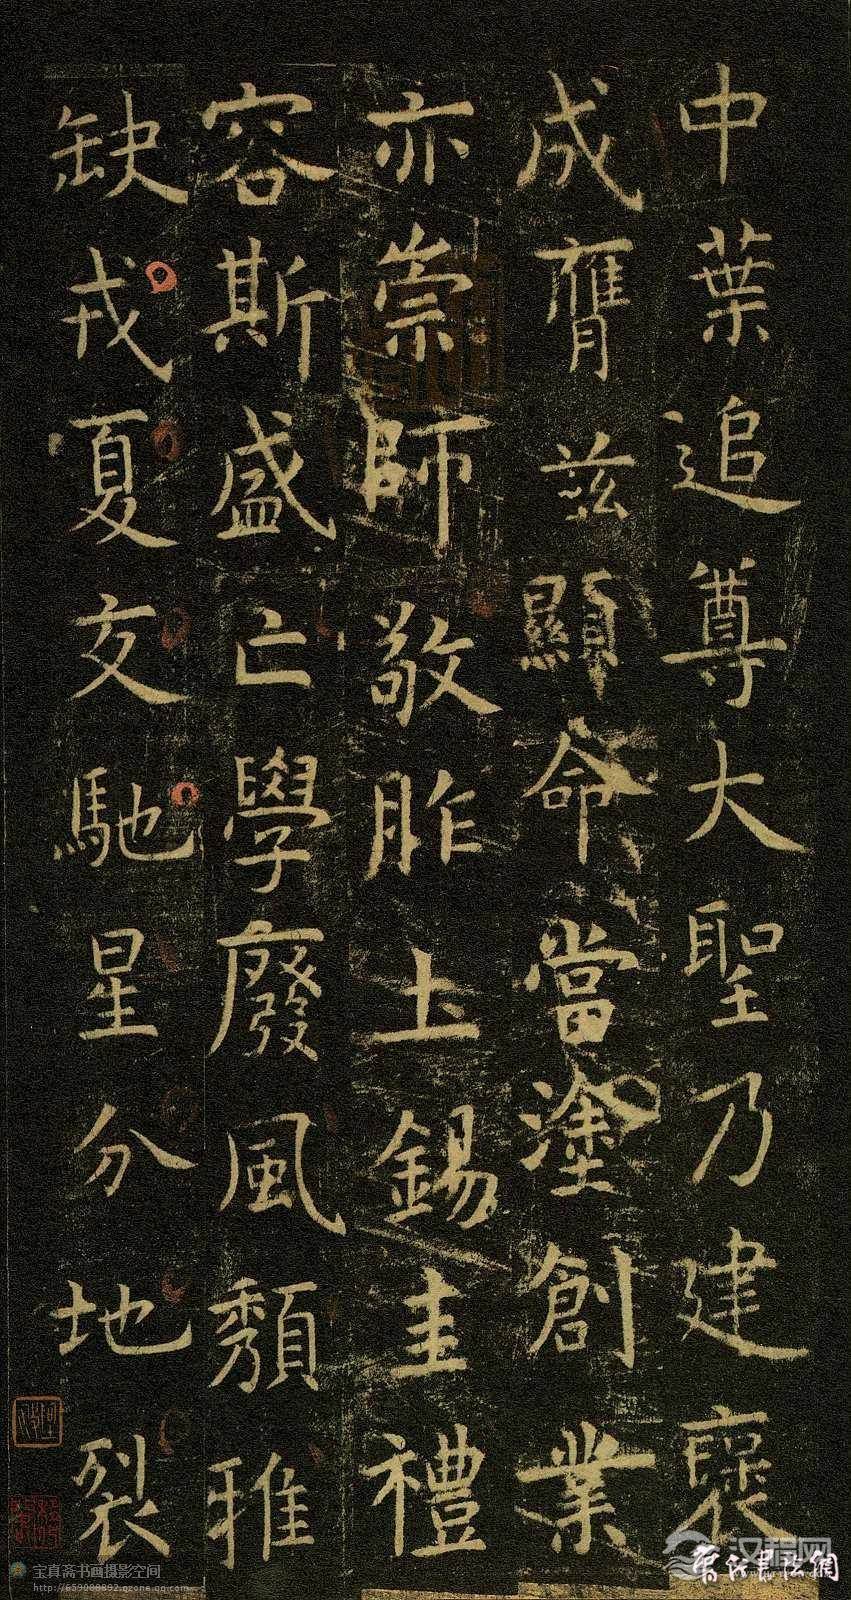 中葉追尊大聖乃建褒
成膺茲顯命當塗創業
亦崇師敬胙土錫圭禮
容斯盛亡學廢風頽雅
缺戎夏交馳星分地裂
宝真斋书画摄影空间
http://659000892.qzone.qq.com
汉程网